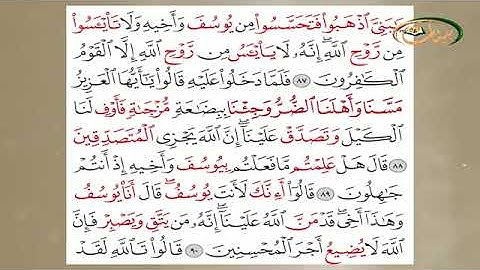 يَٰبَنِىَّ ٱذْهَبُوا۟ فَتَحَسَّسُوا۟ مِن يُوسُفَ وَأَخِيهِ وَلَا تَا۟يْـَٔسُوا۟
مِن رَّوْحِ ٱللَّهِ ۖ إِنَّهُۥ لَا يَا۟يْـَٔسُ مِن رَّوْحِ ٱللَّهِ إِلَّا ٱلْقَوْمُ
ٱلْكَٰفِرُونَ ٨٧ فَلَمَّا دَخَلُوا۟ عَلَيْهِ قَالُوا۟ يَٰٓأَيُّهَا ٱلْعَزِيزُ
مَسَّنَا وَأَهْلَنَا ٱلضُّرُّ وَجِئْنَا بِبِضَٰعَةٍ مُّزْجَىٰةٍ فَأَوْفِ لَنَا
ٱلْكَيْلَ وَتَصَدَّقْ عَلَيْنَآ ۖ إِنَّ ٱللَّهَ يَجْزِى ٱلْمُتَصَدِّقِينَ
٨٨ قَالَ هَلْ عَلِمْتُم مَّا فَعَلْتُم بِيُوسُفَ وَأَخِيهِ إِذْ أَنتُمْ
جَٰهِلُونَ ٨٩ قَالُوٓا۟ أَءِنَّكَ لَأَنتَ يُوسُفُ ۖ قَالَ أَنَا۠ يُوسُفُ
وَهَٰذَآ أَخِى ۖ قَدْ مَنَّ ٱللَّهُ عَلَيْنَآ ۖ إِنَّهُۥ مَن يَتَّقِ وَيَصْبِرْ فَإِنَّ
ٱللَّهَ لَا يُضِيعُ أَجْرَ ٱلْمُحْسِنِينَ ٩٠ قَالُوا۟ تَٱللَّهِ لَقَدْ